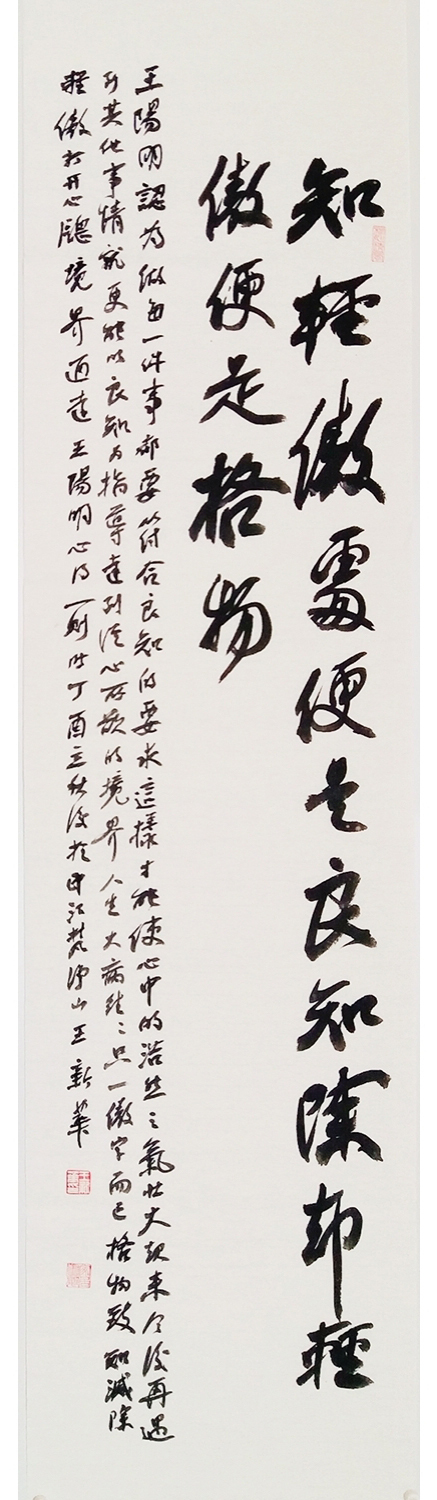 知輕傲處便是良知除却輕
傲便是格物
王陽明認为做每一件事都要符合良知的要求這樣才能使心中的浩然之氣壯大起來今後再遇
到其他事情就更能以良知为指導達到從心所欲的境界人生大病只一傲字而已格物致知減除
輕傲打开心境界王陽明心得一則時丁酉立秋後於江梵淨山王新華